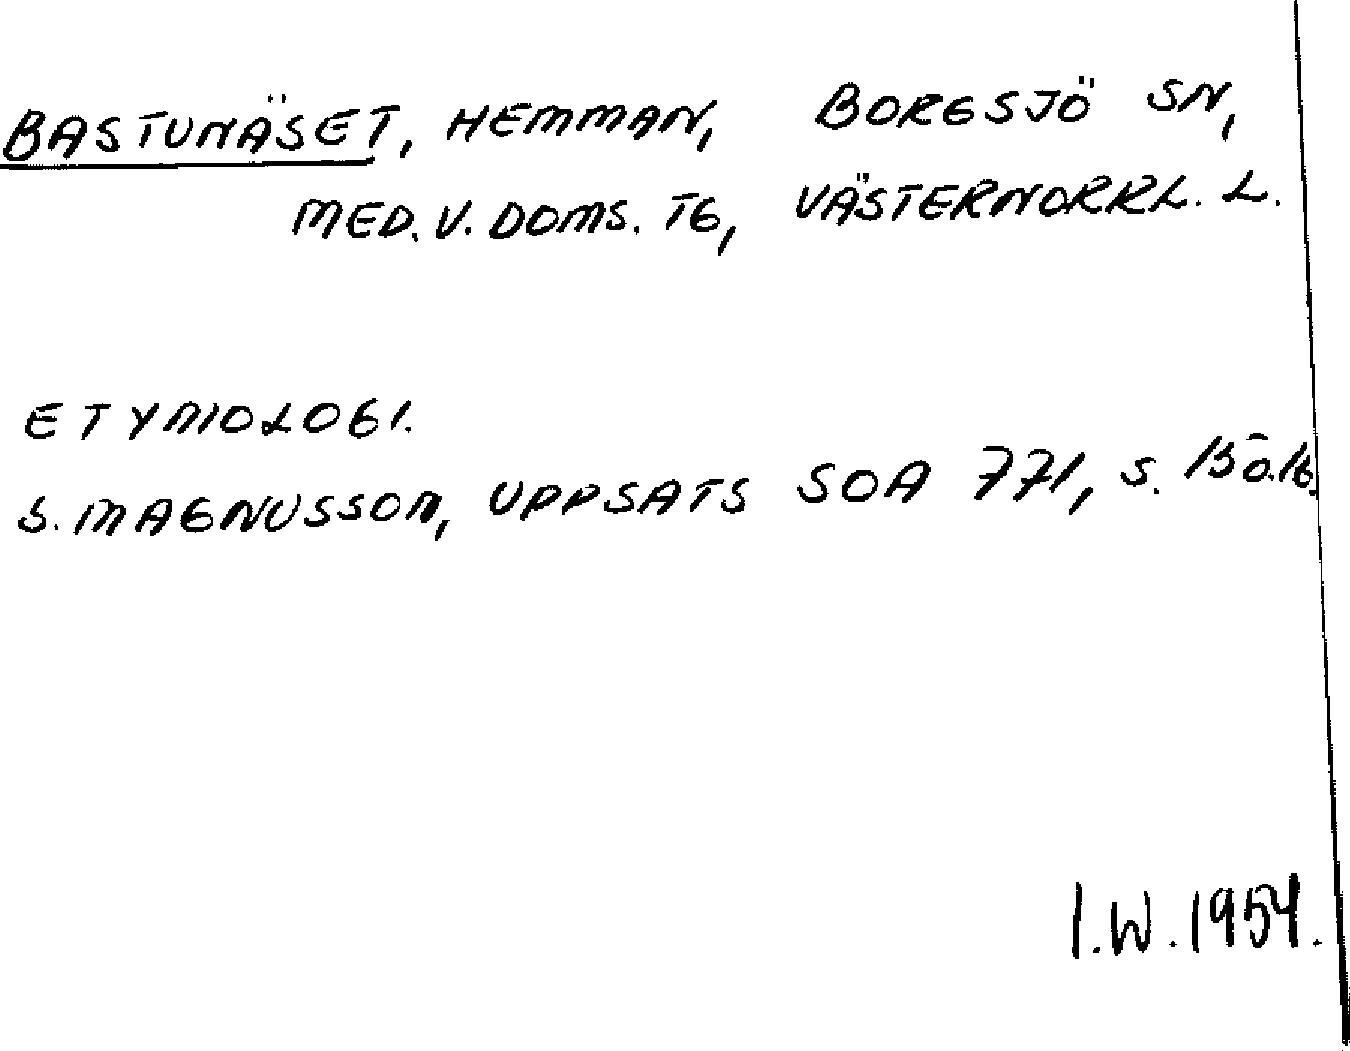 BASTUNÄSET, HEMMAN, BORGSJÖ SN,
MED. V. DOMS. TG, VÄSTERNORRL. L.
ETYMOLOGI.
S. MAGNUSSON, UPPSATS SOA 771, S. 15 O. 16.
I.W. 1954.